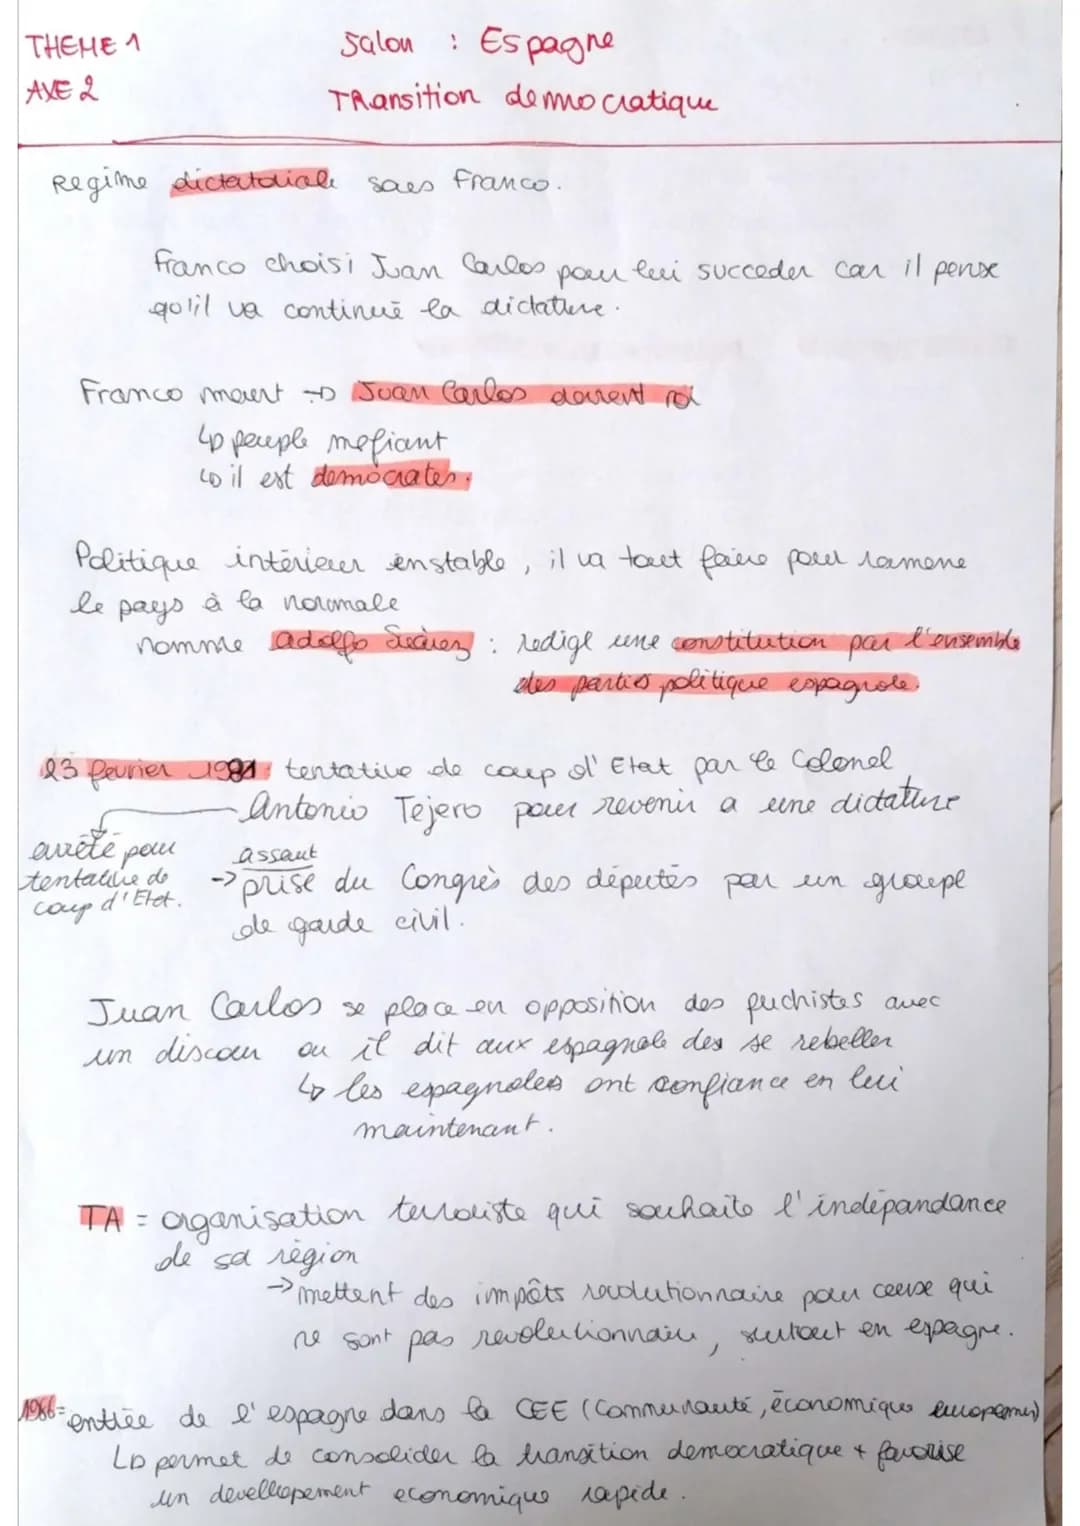 THEME 1
Jalon : Espagne
AXE 2
TRansition democratique
Regime dictatoriale sous Franco.
Franco choisi Juan Carlos pour lui succeder car il pense
qu'il va continué la dictature.
Franco meurt → Juan Carlos devient roi
↳ peuple mefiant
↳ il est democrates.
Politique intérieur enstable, il va tout faire pour ramene
le pays à la normale
nomme adolfo Suárez : redige une constitution par l'ensemble
des parties politique espagnole.
23 fevrier 1981: tentative de coup d'Etat par le Colonel
Antonio Tejero pour revenir a une dictature
arrêté pour
tentative de
coup d'Etat.
assaut
→ prise du Congrès des députés par un groupe
de garde civil.
Juan Carlos se place en opposition des puchistes avec
un discour ou il dit aux espagnole des se rebeller
↳ les espagnoles ont confiance en lui
maintenant.
TA = organisation terroriste qui souhaite l'indépandance
de sa région
→ mettent des impôts revolutionnaire pour ceux qui
ne sont pas revolutionnaire, surtout en espagne.
1986= entrée de l'espagne dans la CEE (Communauté, économique europeenne)
↳ permet de consolider la transition democratique + favorise
un develloppement economique rapide.